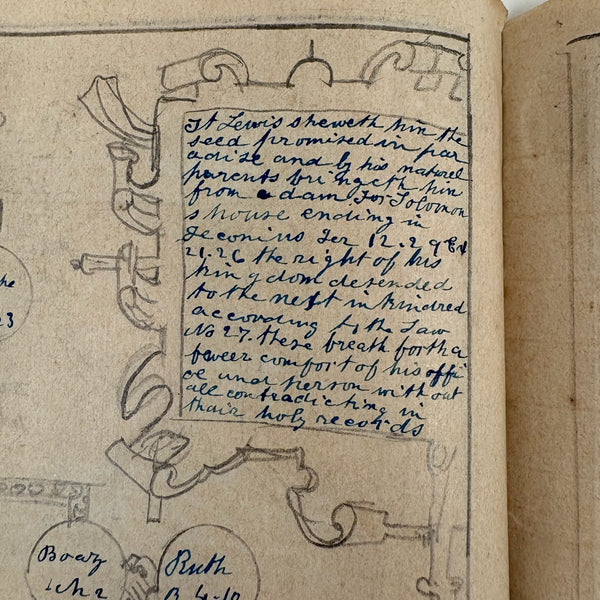 St Lewis sheweth him the
seed promised in par
adise and by his naturel
parents bringeth him
from adam for Solomon
s house ending in
Jeconius Jer 12.29 Ex
21.26 the right of his
kingdom desended
to the next in kindred
according to the Law
No 27. these breath forth a
sweer comfort of his offi
ce und person without
all contradicting in
thair holy records
he
23
Boaz
1 ch 2
Ruth
R 4-10